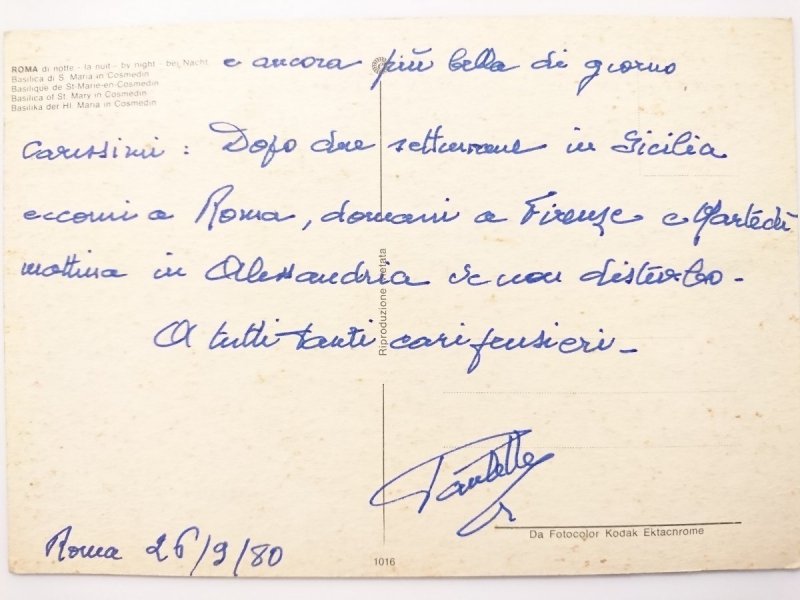 ROMA di notte - la nuit - by night - bei Nacht
Basilica di S. Maria in Cosmedin
Basilique de St-Marie-en-Cosmedin
Basilica of St. Mary in Cosmedin
Basilika der Hl. Maria in Cosmedin
e ancora più bella di giorno
Carissimi : Dopo due settimane in Sicilia
eccomi a Roma, domani a Firenze e Martedì
mattina in Alessandria se non disturbo -
A tutti tanti cari pensieri -
Paulette
Roma 26/9/80
Riproduzione vietata
Da Fotocolor Kodak Ektachrome
1016